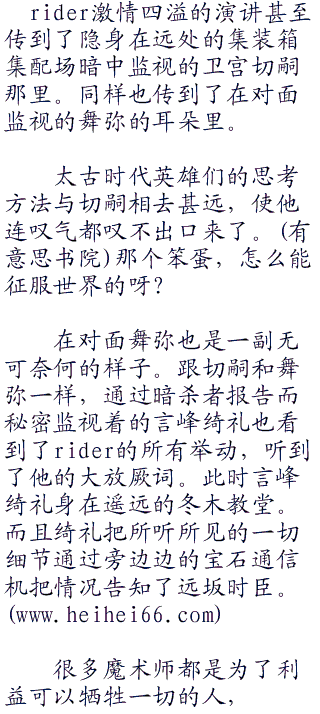 rider激情四溢的演讲甚至
传到了隐身在远处的集装箱
集配场暗中监视的卫宫切嗣
那里。同样也传到了在对面
监视的舞弥的耳朵里。
太古时代英雄们的思考
方法与切嗣相去甚远，使他
连叹气都叹不出口来了。(有
意思书院)那个笨蛋，怎么能
征服世界的呀?
在对面舞弥也是一副无
可奈何的样子。跟切嗣和舞
弥一样，通过暗杀者报告而
秘密监视着的言峰绮礼也看
到了rider的所有举动，听到
了他的大放厥词。此时言峰
绮礼身在遥远的冬木教堂。
而且绮礼把所听所见的一切
细节通过旁边边的宝石通信
机把情况告知了远坂时臣。
(www.heihei66.com)
很多魔术师都是为了利
益可以牺牲一切的人，